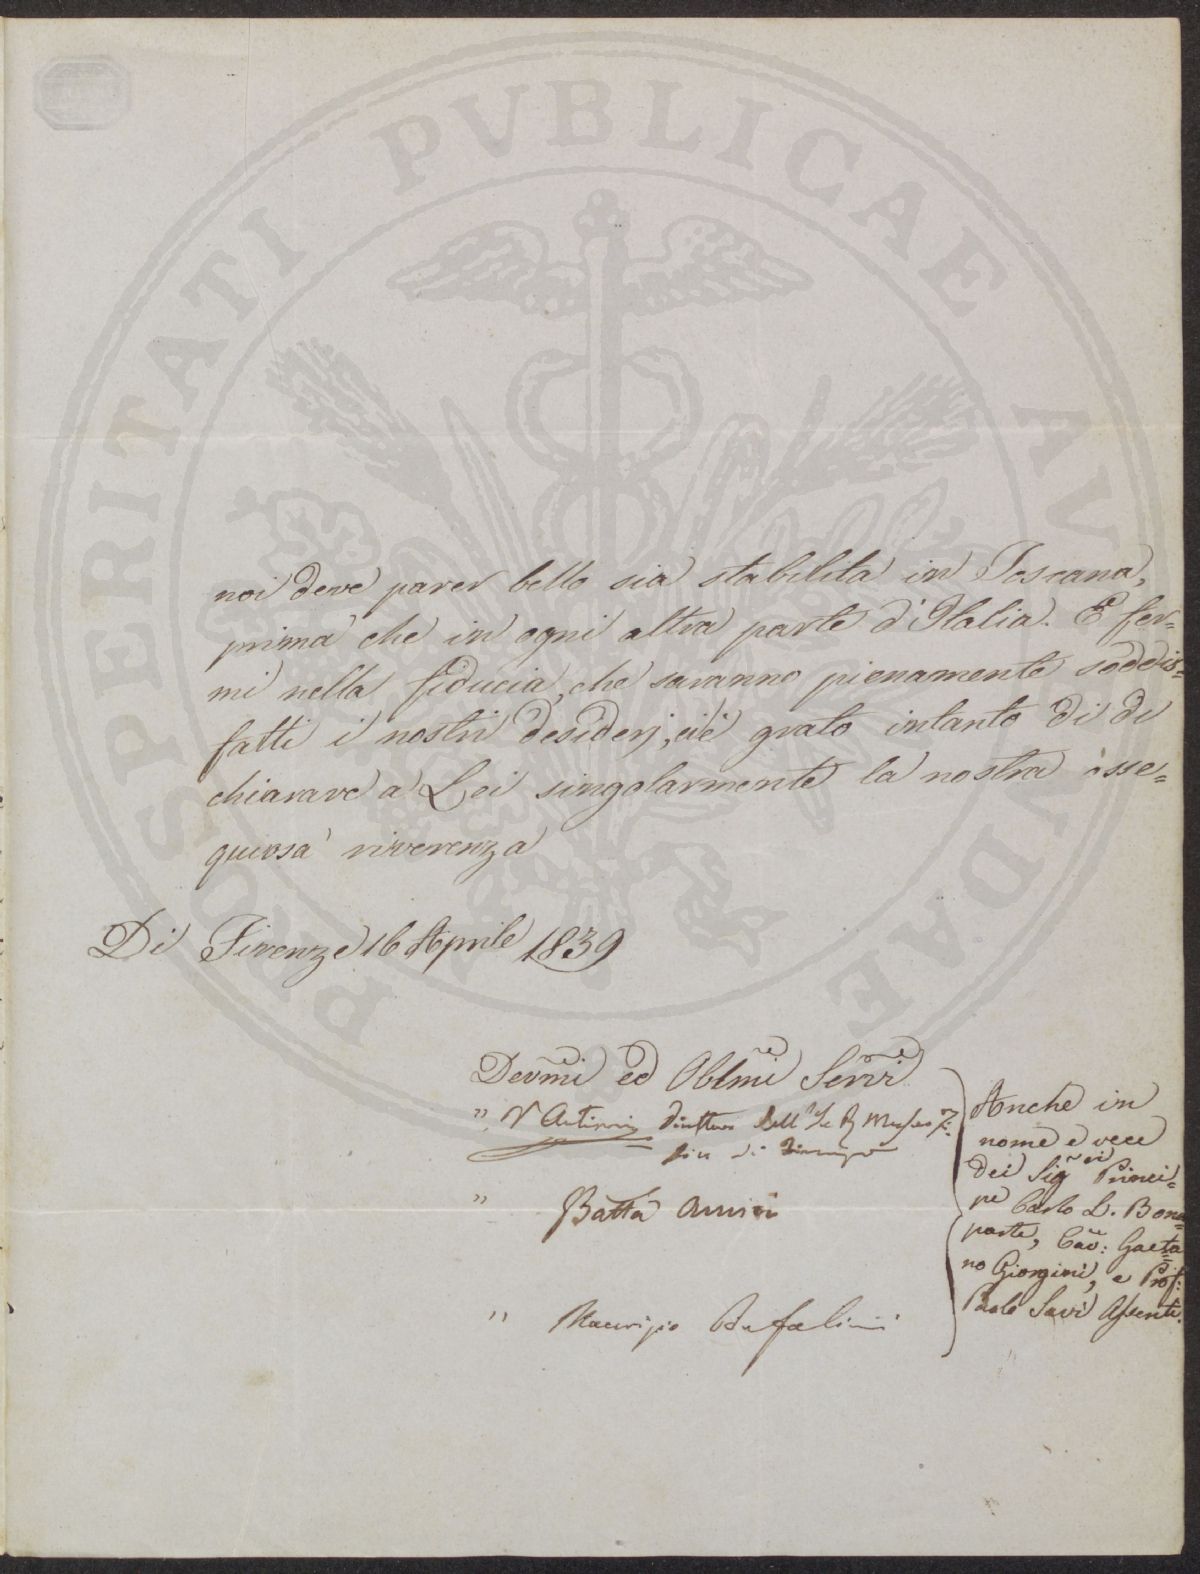 PROSPERITATI PVBLICAE AVGENDAE
noi deve parer bello sia stabilita in Toscana,
prima che in ogni altra parte d'Italia. E fer=
mi nella fiducia, che saranno pienamente soddis=
fatti i nostri desiderj, ci è grato intanto di di
chiarare a Lei singolarmente la nostra osse=
quiosa riverenza
Di Firenze 16 Aprile 1839
Devmi ed Obbmi Servi
" V Antinori Direttore dell' I e R Museo di Fi
sica di Firenze
" Batta Amici
" Maurizio Bufalini
Anche in
nome e vece
dei Sigri Princi=
pe Carlo L. Bona=
parte, Cav: Gaeta=
no Giorgini, e Prof:
Paolo Savi Assenti.